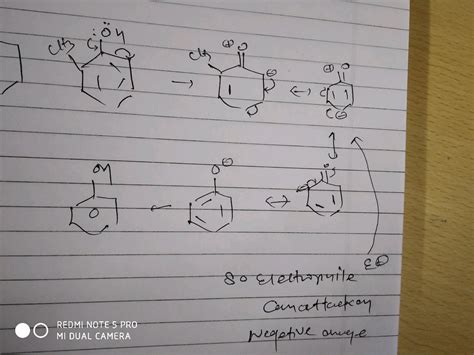 ÖH
CH3
⊕ O
CH3
⊖
⊕ O
C ⊖
OH
O ⊖
O
E⊕
So Electrophile
Can attack on
Negative charge
REDMI NOTE 5 PRO
MI DUAL CAMERA